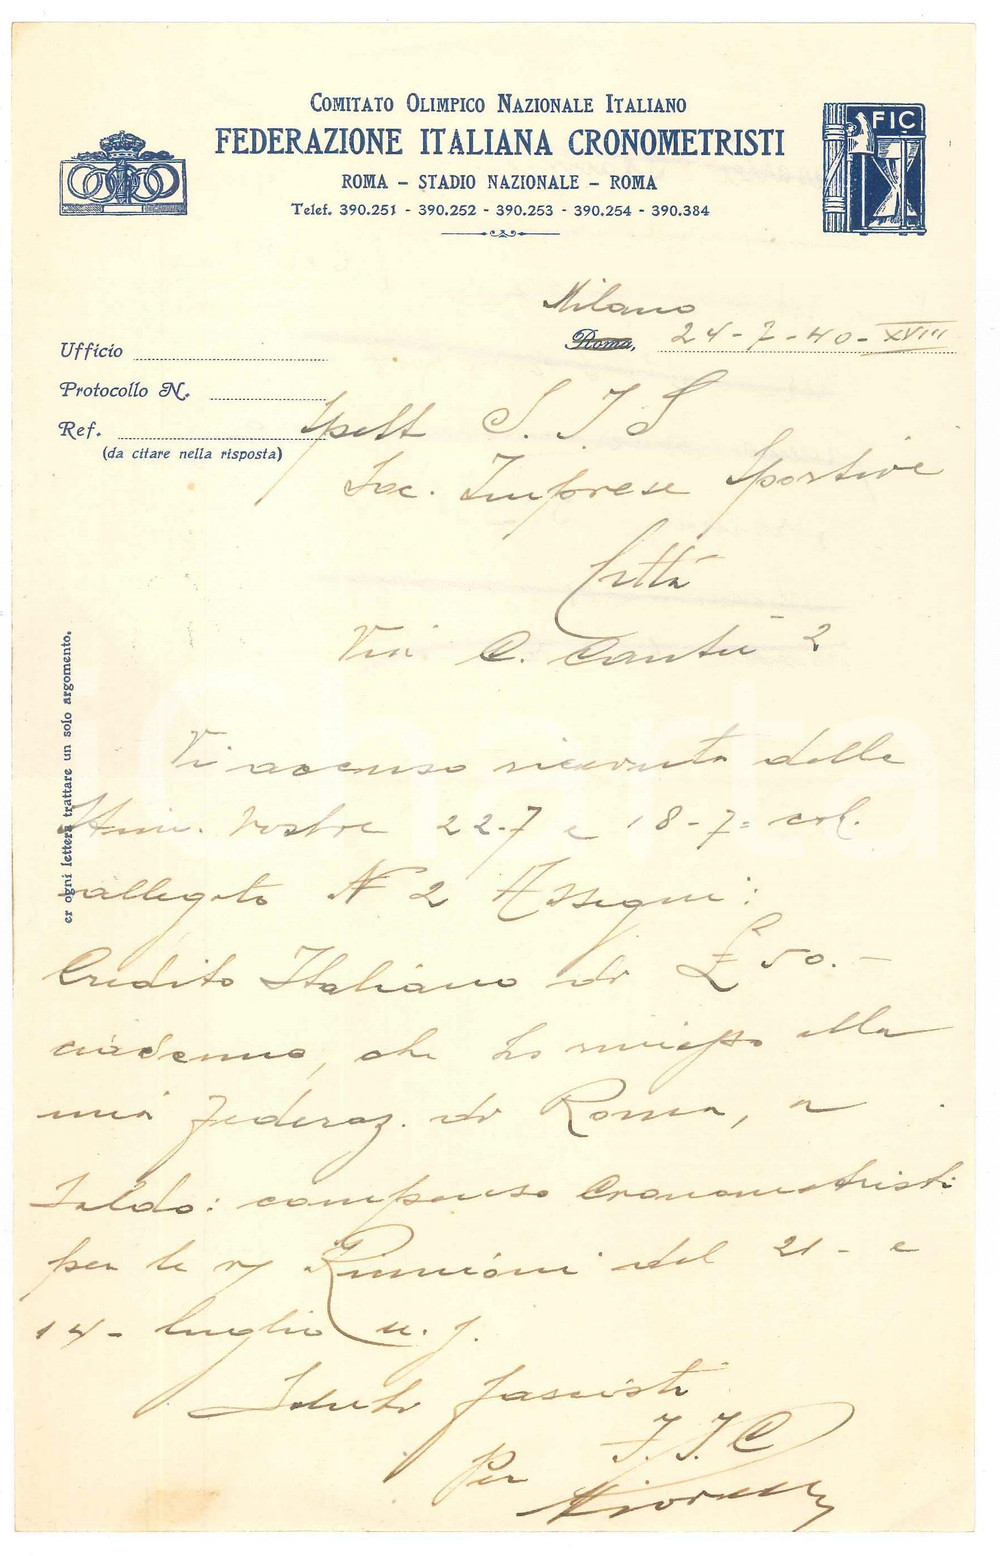 COMITATO OLIMPICO NAZIONALE ITALIANO
FEDERAZIONE ITALIANA CRONOMETRISTI
ROMA – STADIO NAZIONALE – ROMA
Telef. 390.251 - 390.252 - 390.253 - 390.254 - 390.384
FIC
Milano
Roma, 24-7-40-XVIII
Ufficio
Protocollo N.
Ref.
(da citare nella risposta)
Spett S. I. S
Soc. Imprese Sportive
Città
Via C. Cantù 2
er ogni lettera trattare un solo argomento.
Vi accuso ricevuta delle
Stim. Vostre 22-7 e 18-7= col.
allegato N 2 Assegni:
Credito Italiano di £ 50.-
ciascuno, che ho rimesso alla
mia Federaz. di Roma, a
Saldo: compenso Cronometristi
per le Riunioni del 21- e
14- Luglio u. s.
Saluti fascisti
Per F.I.C
iCharta